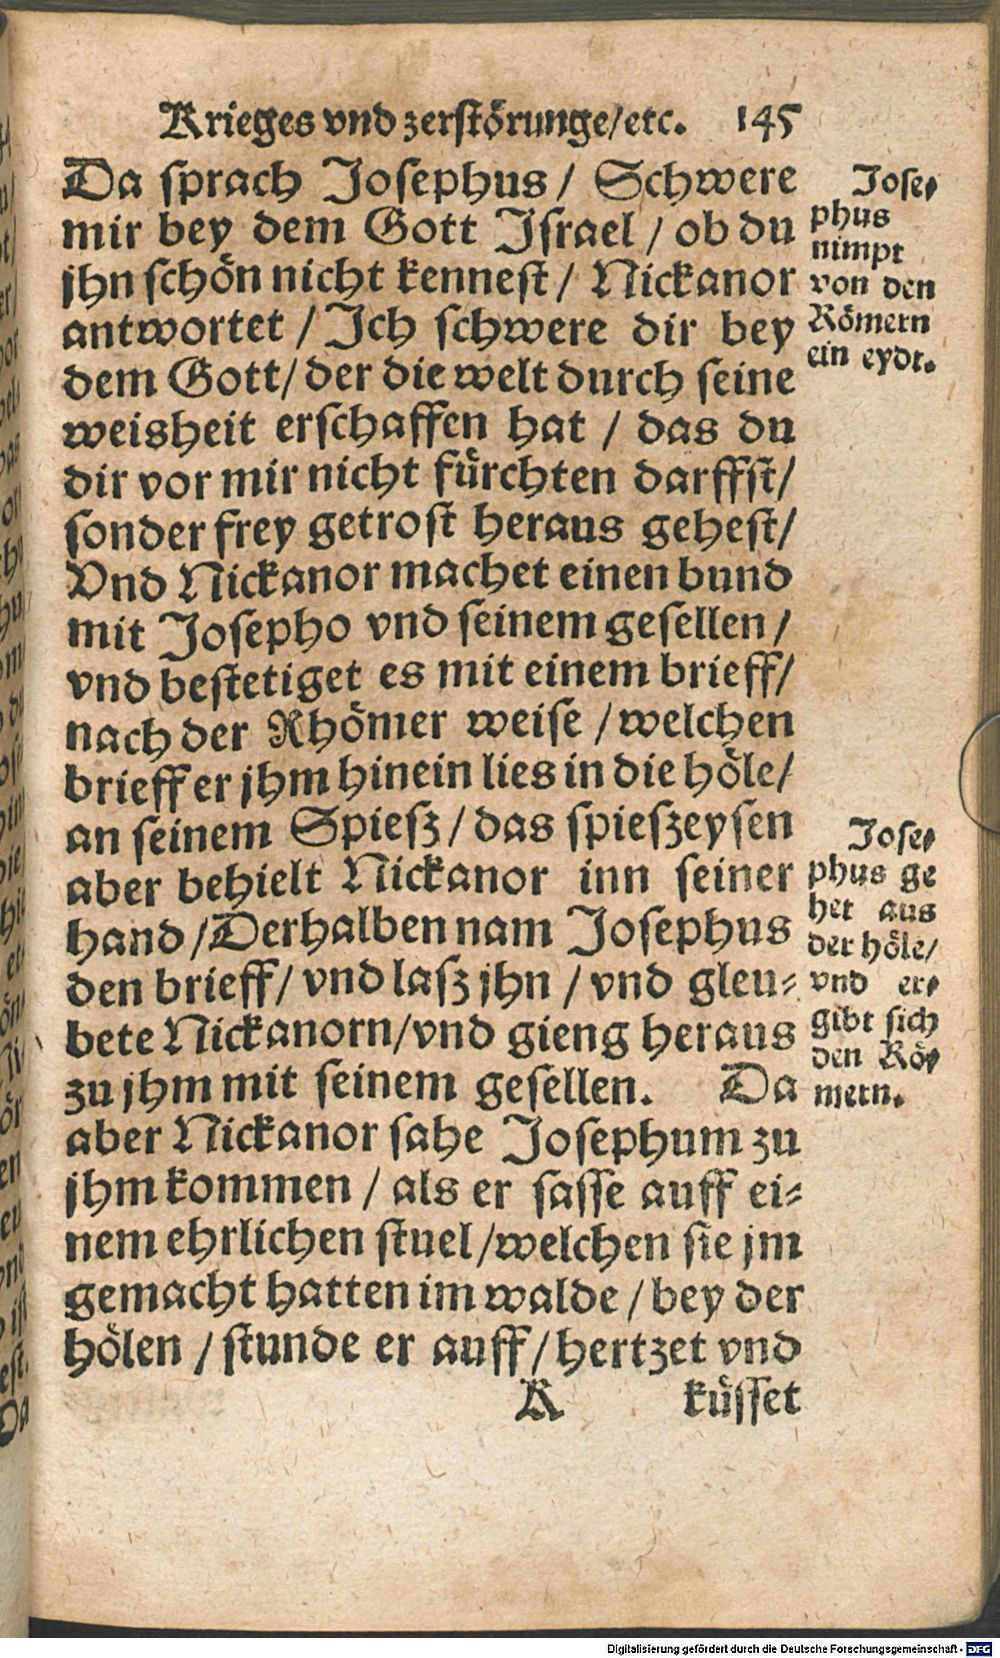 Krieges vnd zerstörunge/etc. 145
Da sprach Josephus / Schwere
mir bey dem Gott Israel / ob du
jhn schön nicht kennest / Nickanor
antwortet / Ich schwere dir bey
dem Gott / der die welt durch seine
weisheit erschaffen hat / das du
dir vor mir nicht fürchten darffst /
sonder frey getrost heraus gehest /
Vnd Nickanor machet einen bund
mit Josepho vnd seinem gesellen /
vnd bestetiget es mit einem brieff /
nach der Rhömer weise / welchen
brieff er jhm hinein lies in die höle /
an seinem Spiesz / das spieszeysen
aber behielt Nickanor inn seiner
hand / Derhalben nam Josephus
den brieff / vnd lasz jhn / vnd gleu-
bete Nickanorn / vnd gieng heraus
zu jhm mit seinem gesellen. Da
aber Nickanor sahe Josephum zu
jhm kommen / als er sasse auff ei-
nem ehrlichen stuel / welchen sie jm
gemacht hatten im walde / bey der
hölen / stunde er auff / hertzet vnd
K küsset
Jose-
phus
nimpt
von den
Römern
ein eydt.
Jose-
phus ge
het aus
der höle /
vnd er-
gibt sich
den Rö-
mern.
Digitalisierung gefördert durch die Deutsche Forschungsgemeinschaft - DFG